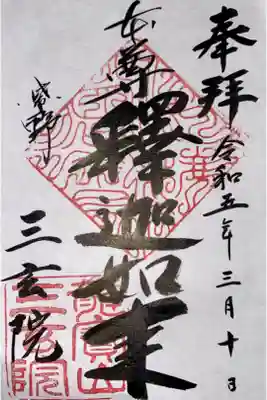 奉拝
令和五年三月十日
本尊
釋迦如来
紫野
三玄院